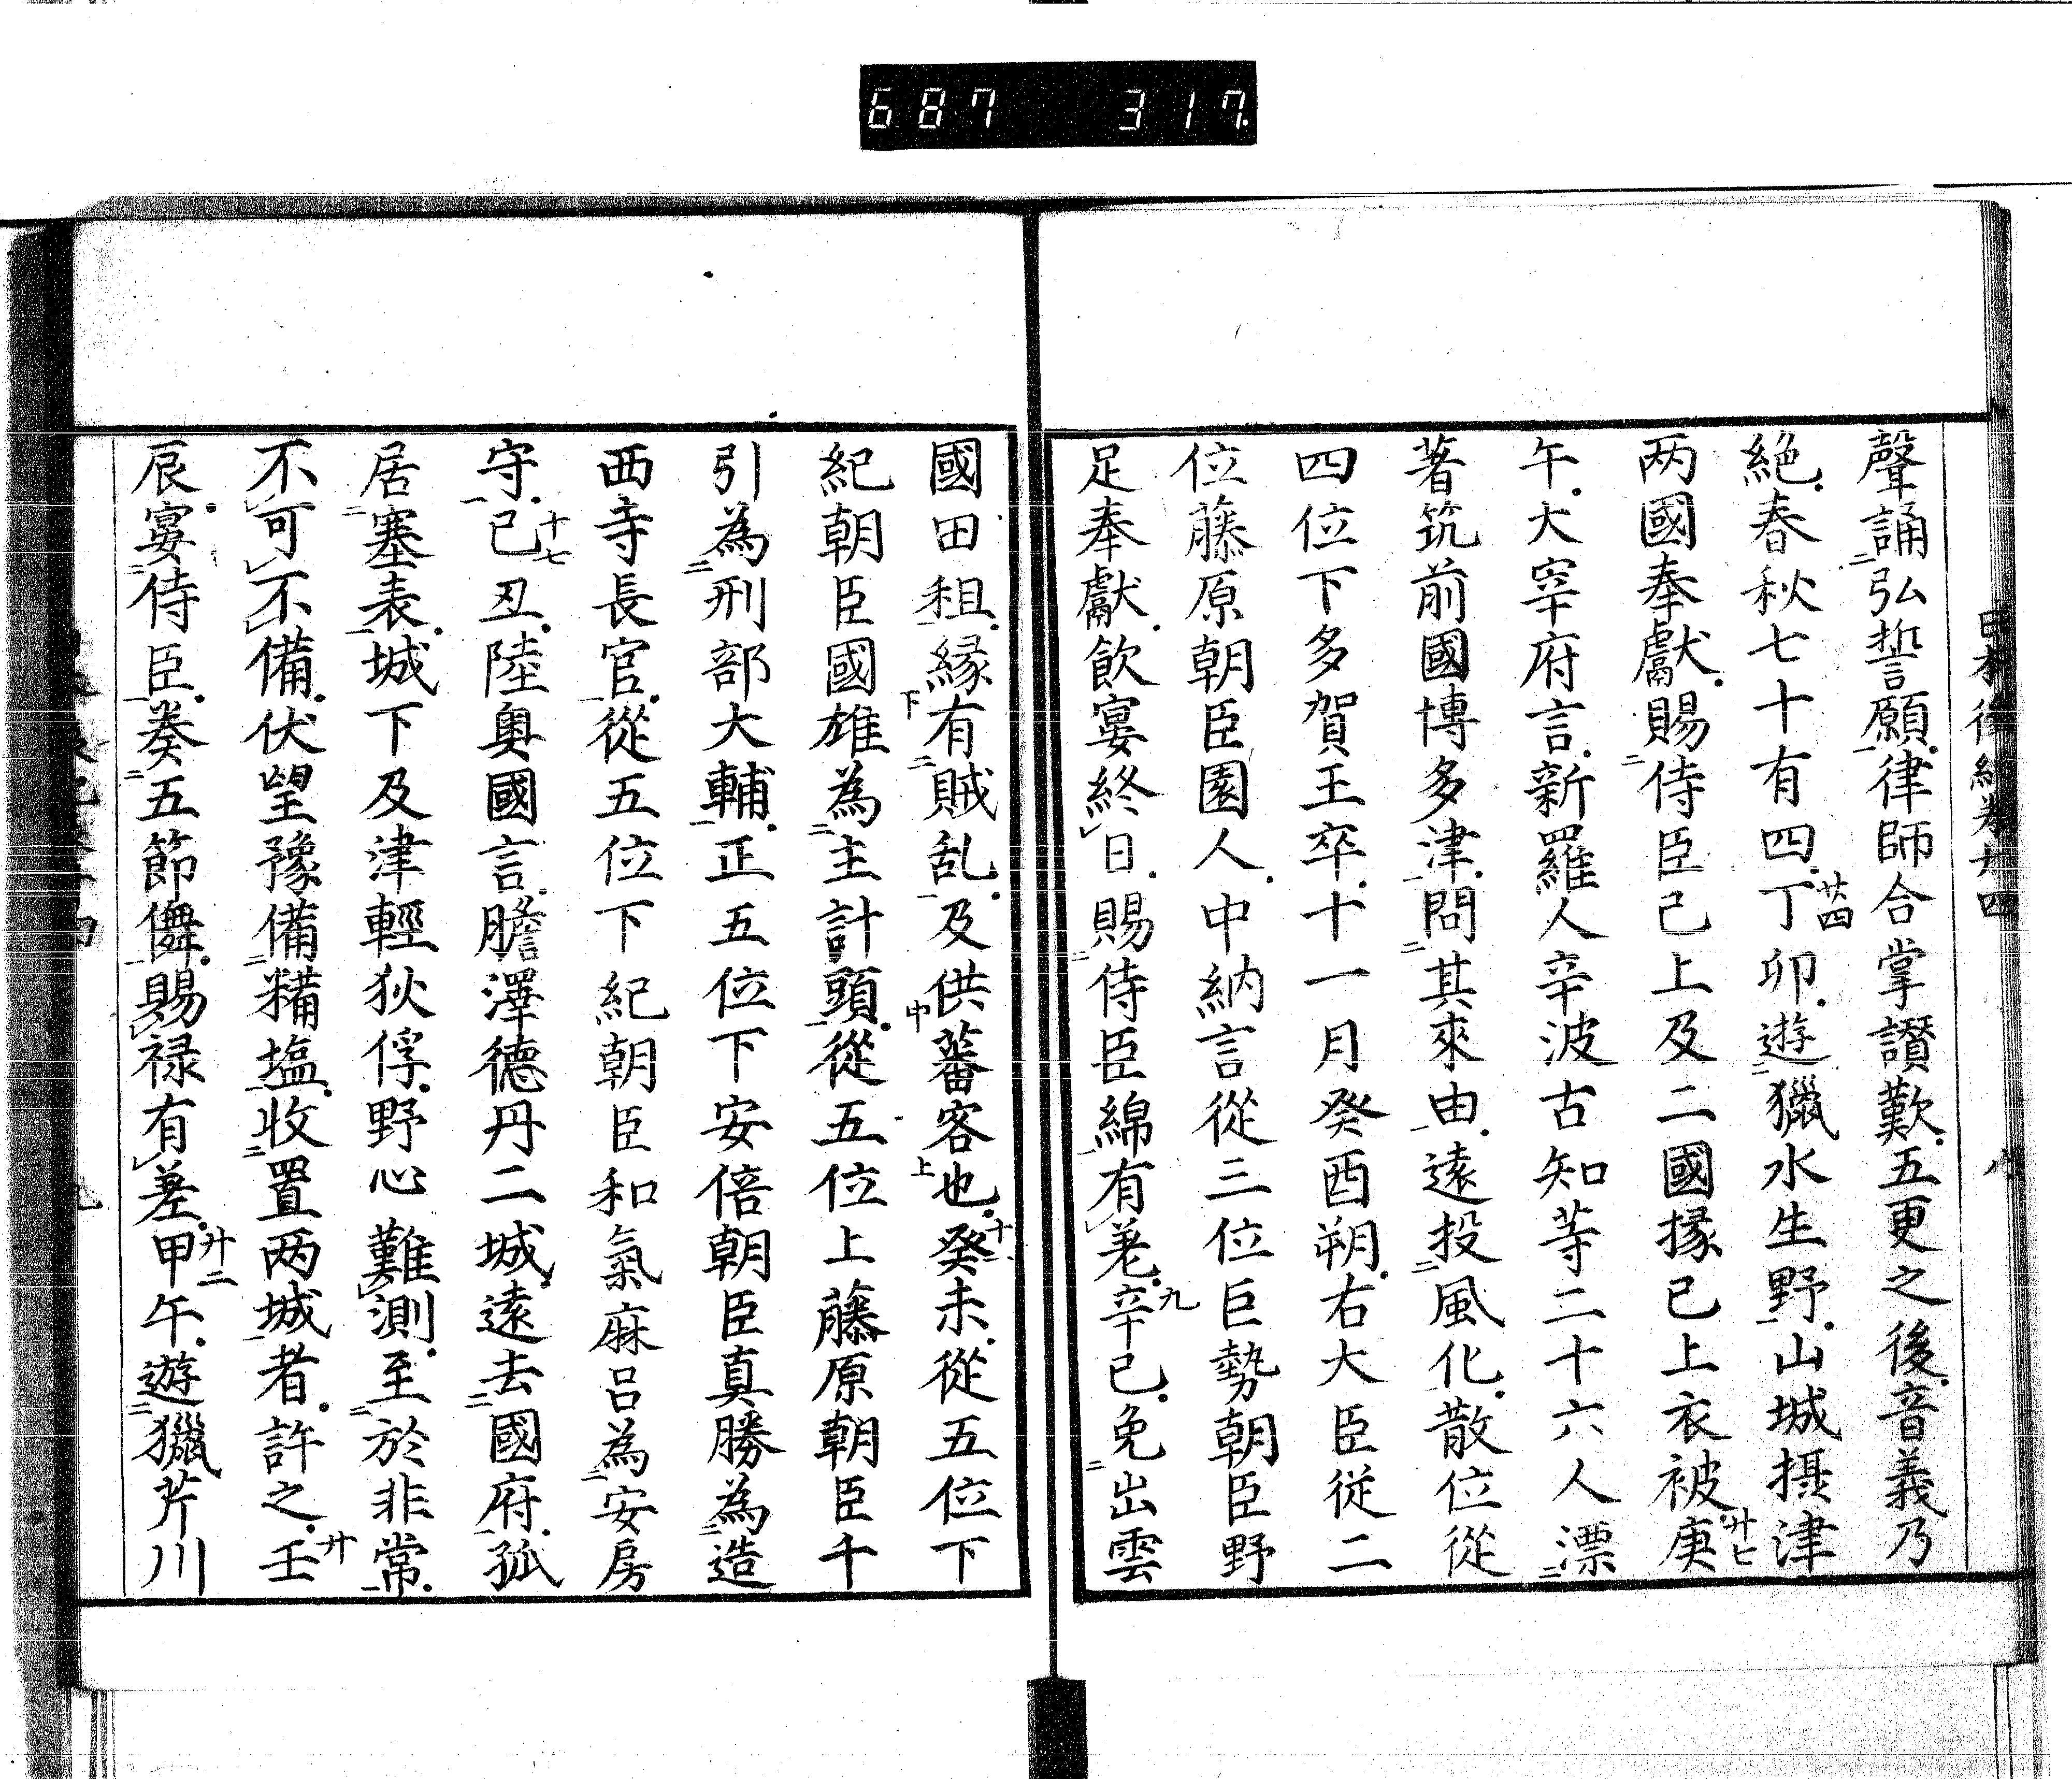 687 317
日本後紀卷廿四 八
聲誦弘誓願律師合掌讃歎五更之後音義乃
絶春秋七十有四丁卯遊獵水生野山城摂津
两國奉獻賜侍臣已上及二國掾已上衣被庚
午大宰府言新羅人辛波古知等二十六人漂
著筑前國博多津問其來由遠投風化散位從
四位下多賀王卒十一月癸酉朔右大臣従二
位藤原朝臣園人中納言從三位巨勢朝臣野
足奉獻飲宴終日賜侍臣綿有差辛已免出雲
國田租縁有賊乱及供蕃客也癸未從五位下
紀朝臣國雄為主計頭從五位上藤原朝臣千
引為刑部大輔正五位下安倍朝臣真勝為造
西寺長官從五位下紀朝臣和氣麻呂為安房
守已丑陸奥國言膽澤德丹二城遠去國府孤
居塞表城下及津輕狄俘野心難測至於非常
不可不備伏望豫備糒塩收置两城者許之壬
辰宴侍臣奏五節儛賜禄有差甲午遊獵芹川